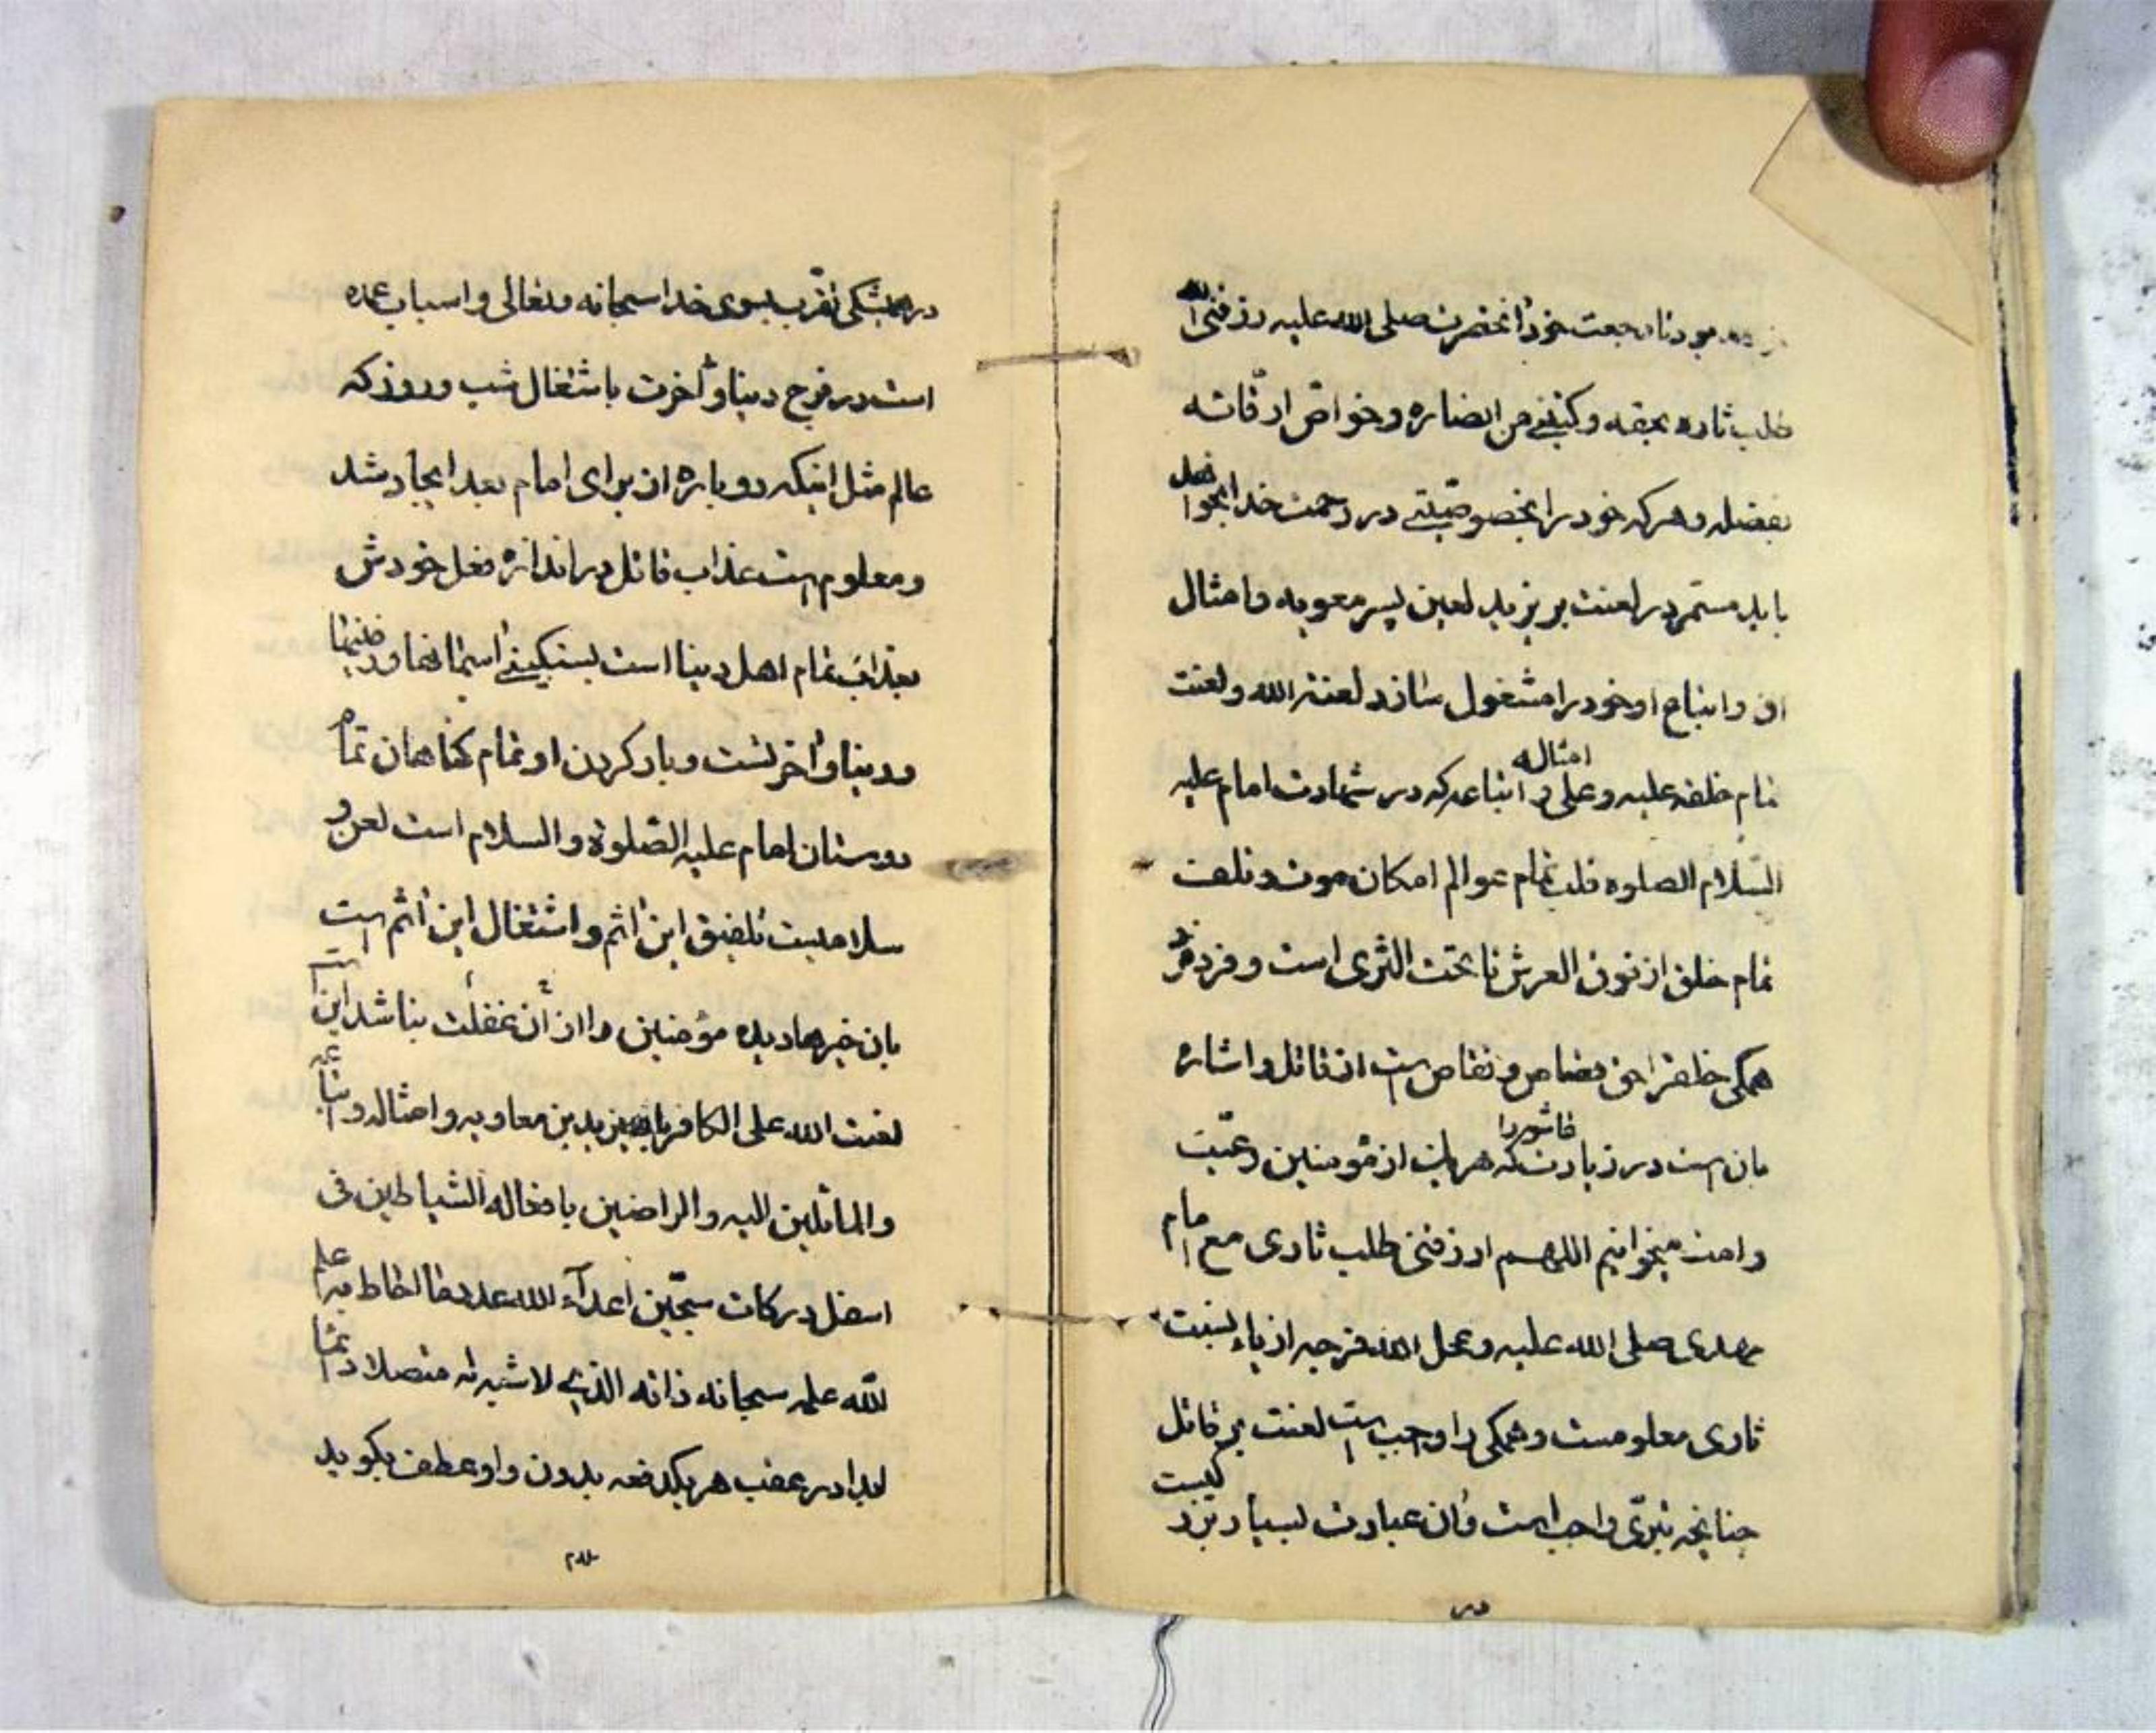 خود آنحضرت صلی الله علیه رزقنی الله
طلب ثاره بحقه و من انصاره و خواص ارقائه
بفضله و هرکه خود را بخصوصیتی در رحمت خدا بخواهد
باید مستمر در لعنت بر یزید لعین پسر معویه و امثال
او و اتباع او خود را مشغول سازد لعنة الله و لعنت
تمام خلقه علیه و علی امثاله و اتباعه که در شهادت امام علیه
السلام الصلوه قلب تمام عوالم امکان موت و تلف
تمام خلق از فوق العرش تا تحت الثری است و فرد فرد
همگی خلق را حق قصاص و تقاص است از قاتل و اشاره
بان است در زیارت عاشورا که هریک از مؤمنین رعیت
و امت میخوانیم اللهم ارزقنی طلب ثاری مع امام
مهدی صلی الله علیه و عجل الله فرجه از یاء نسبت
ثاری معلومست و همگی را واجب است لعنت بر قاتل
چنانچه تبری واجب است و آن عبادت بسیار بزرگیست
در
در همیشگی تقرب بسوی خدا سبحانه و تعالی و اسباب عمده
است در فرج دنیا و آخرت باشتغال شب و روز که
عالم مثل اینکه دوباره از برای امام بعد ایجاد شد
و معلوم است عذاب قاتل در اندازه فعل خودش
بعذاب تمام اهل دنیا است بسنگینی آسمانها و زمینها
و دنیا و آخرتست و بار کردن او تمام گناهان تمام
دوستان امام علیه الصلوة و السلام است لعن و
سلامیست تلفیق این اثم و اشتغال این اثم است
بان خبرها دیده مؤمنین را از آن غفلت نباشد این است
لعنت الله علی الکافر یزید بن معاویه و امثاله و اتباعه
و المائلین الیه و الراضین بافعاله الشیاطین فی
اسفل درکات سجین اعداء الله عدد ما احاط به علم
الله علم سبحانه ذاته الذی لا شبه له متصلا دائما
ابدا در عقب هر یکدفعه بدون واو عطف بگوید